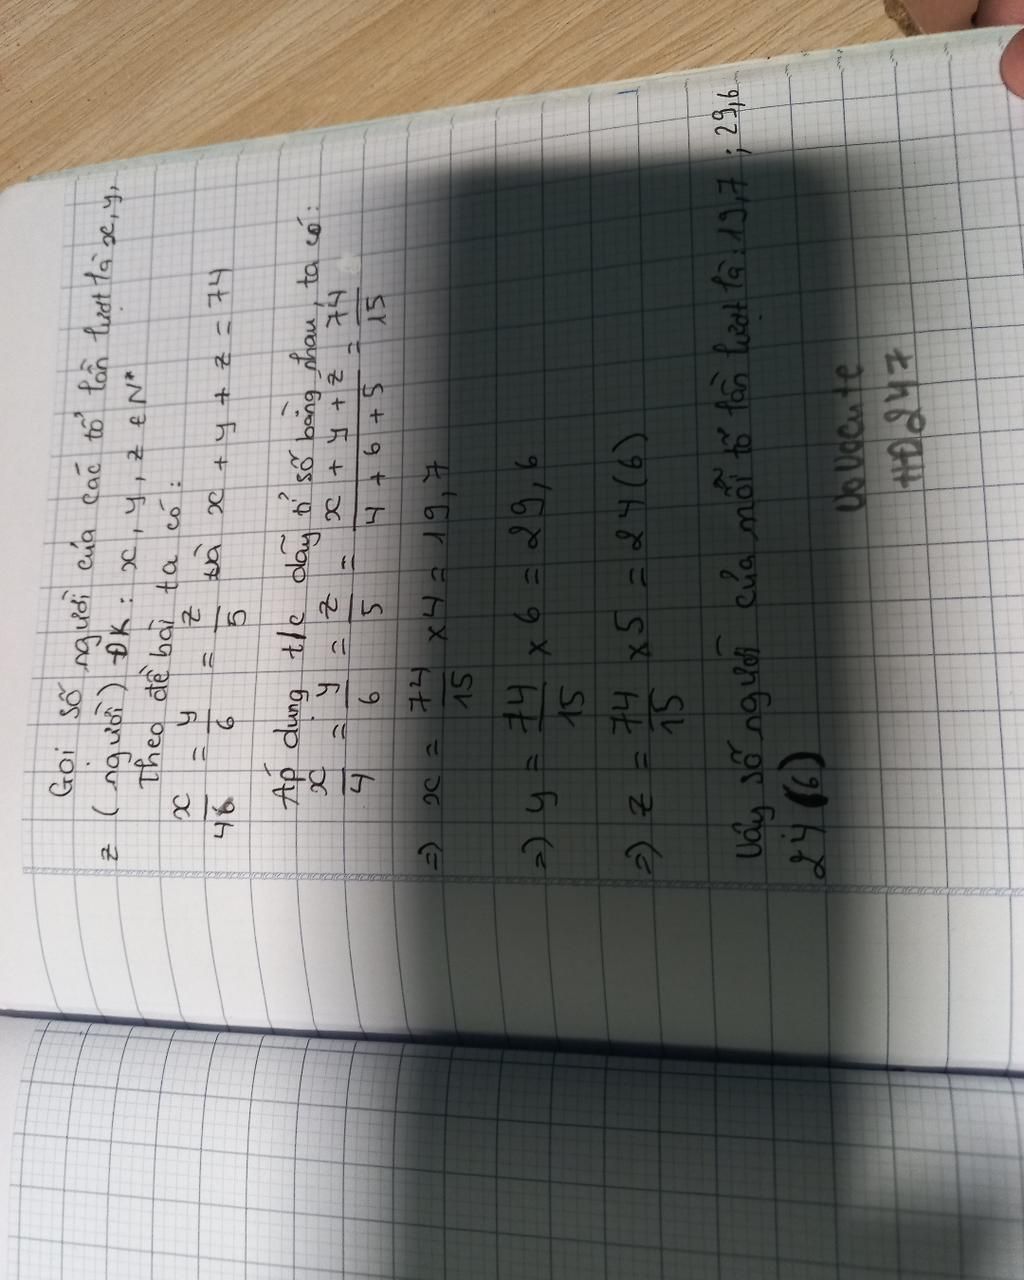 Gọi số người của các tổ lần lượt là x, y,
z (người) ĐK: x, y, z ∈ N*
Theo đề bài ta có:
x/4 = y/6 = z/5 và x + y + z = 74
Áp dụng t/c dãy tỉ số bằng nhau, ta có:
x/4 = y/6 = z/5 = (x + y + z)/(4 + 6 + 5) = 74/15
=) x = 74/15 × 4 = 19,7
=) y = 74/15 × 6 = 29,6
=) z = 74/15 × 5 = 24(6)
Vậy số người của mỗi tổ lần lượt là: 19,7 ; 29,6
24(6)
HĐ247